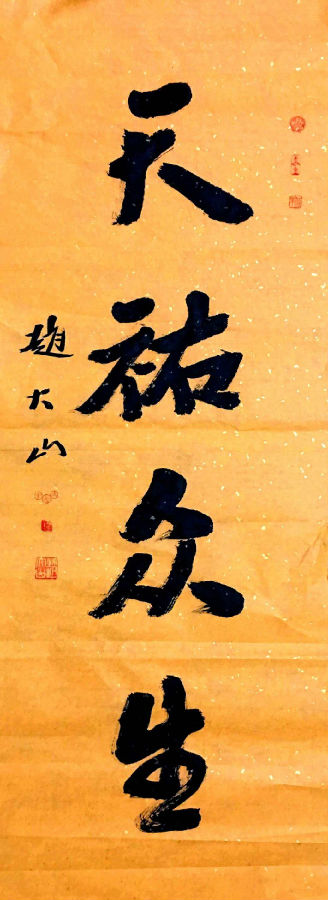 天祐众生
趙大山